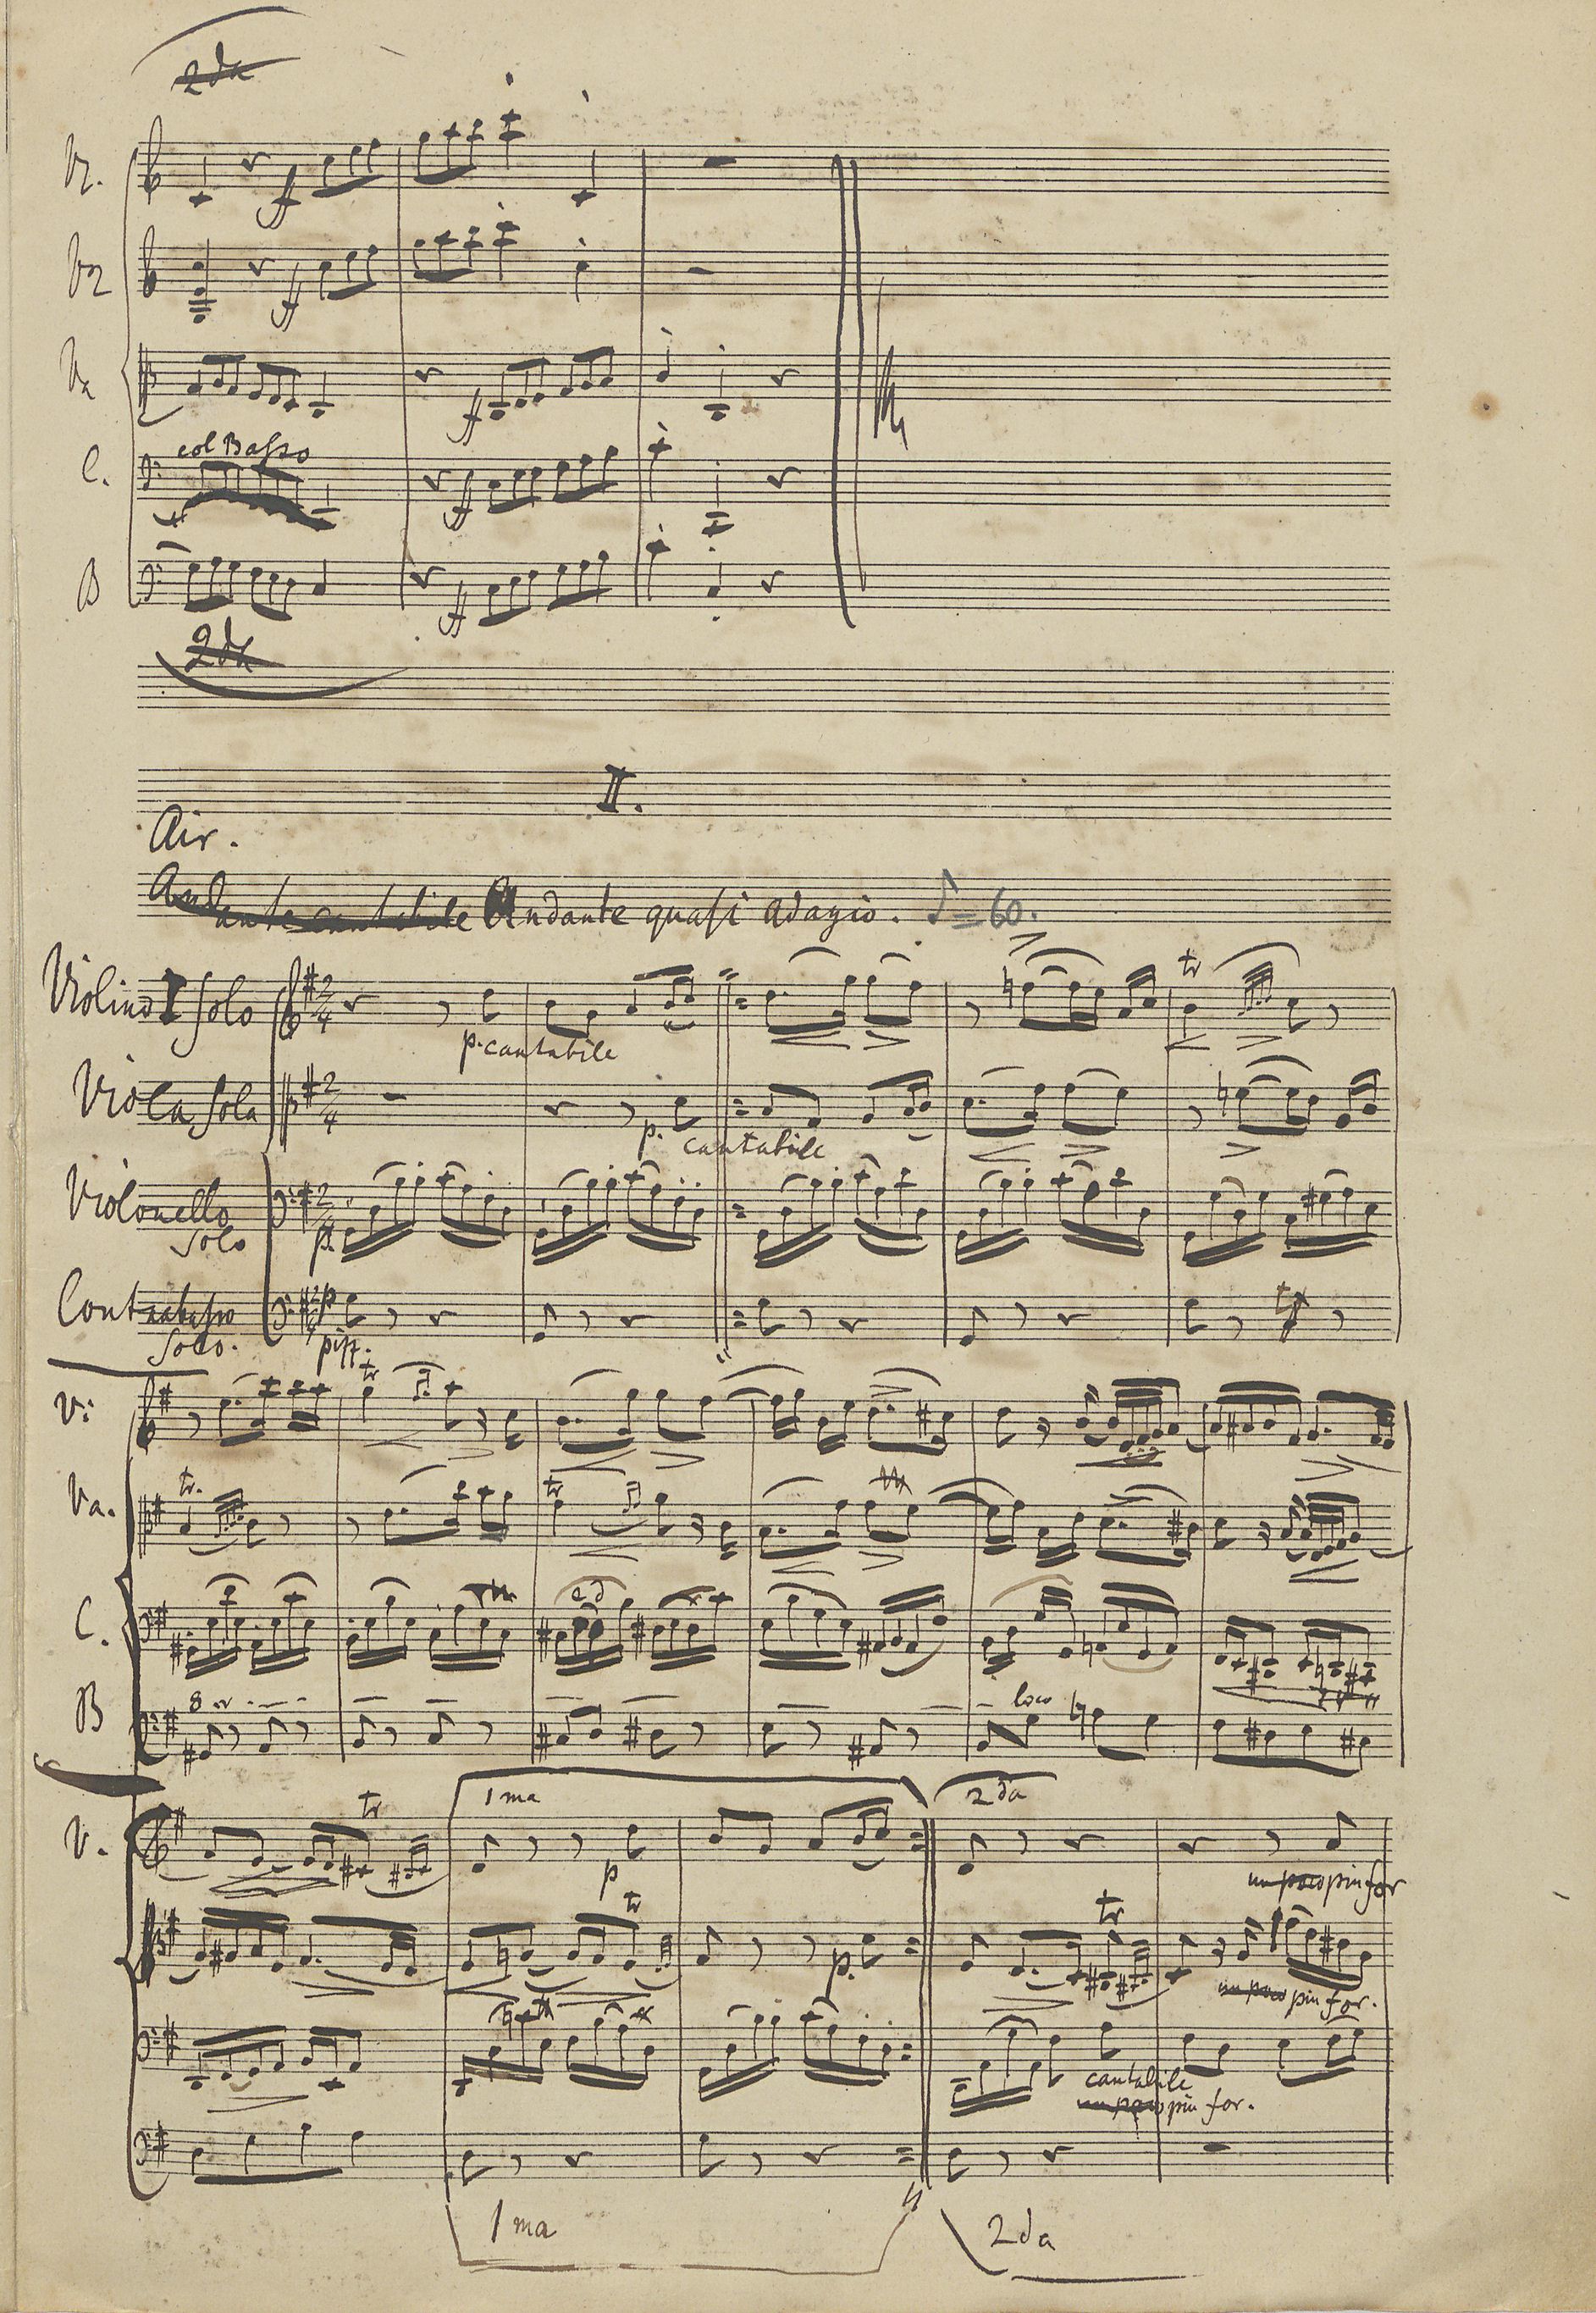 2da
V1.
V2
Va
C.
col Basso
B
ff
ff
ff
ff
ff
2da
II.
Air.
Andante cantabile Andante quasi adagio. ♪=60.
Violino I Solo
p. cantabile
tr
Viola Sola
p. cantabile
Violoncello
Solo
p.
Contrabasso
Solo.
p
pizz.
V:
tr
Va.
tr.
tr
C.
B
8
loco
V.
tr
1ma
2da
p
un poco piu for
tr
p.
tr
un poco piu for.
cantabile
un poco piu for.
1ma
2da